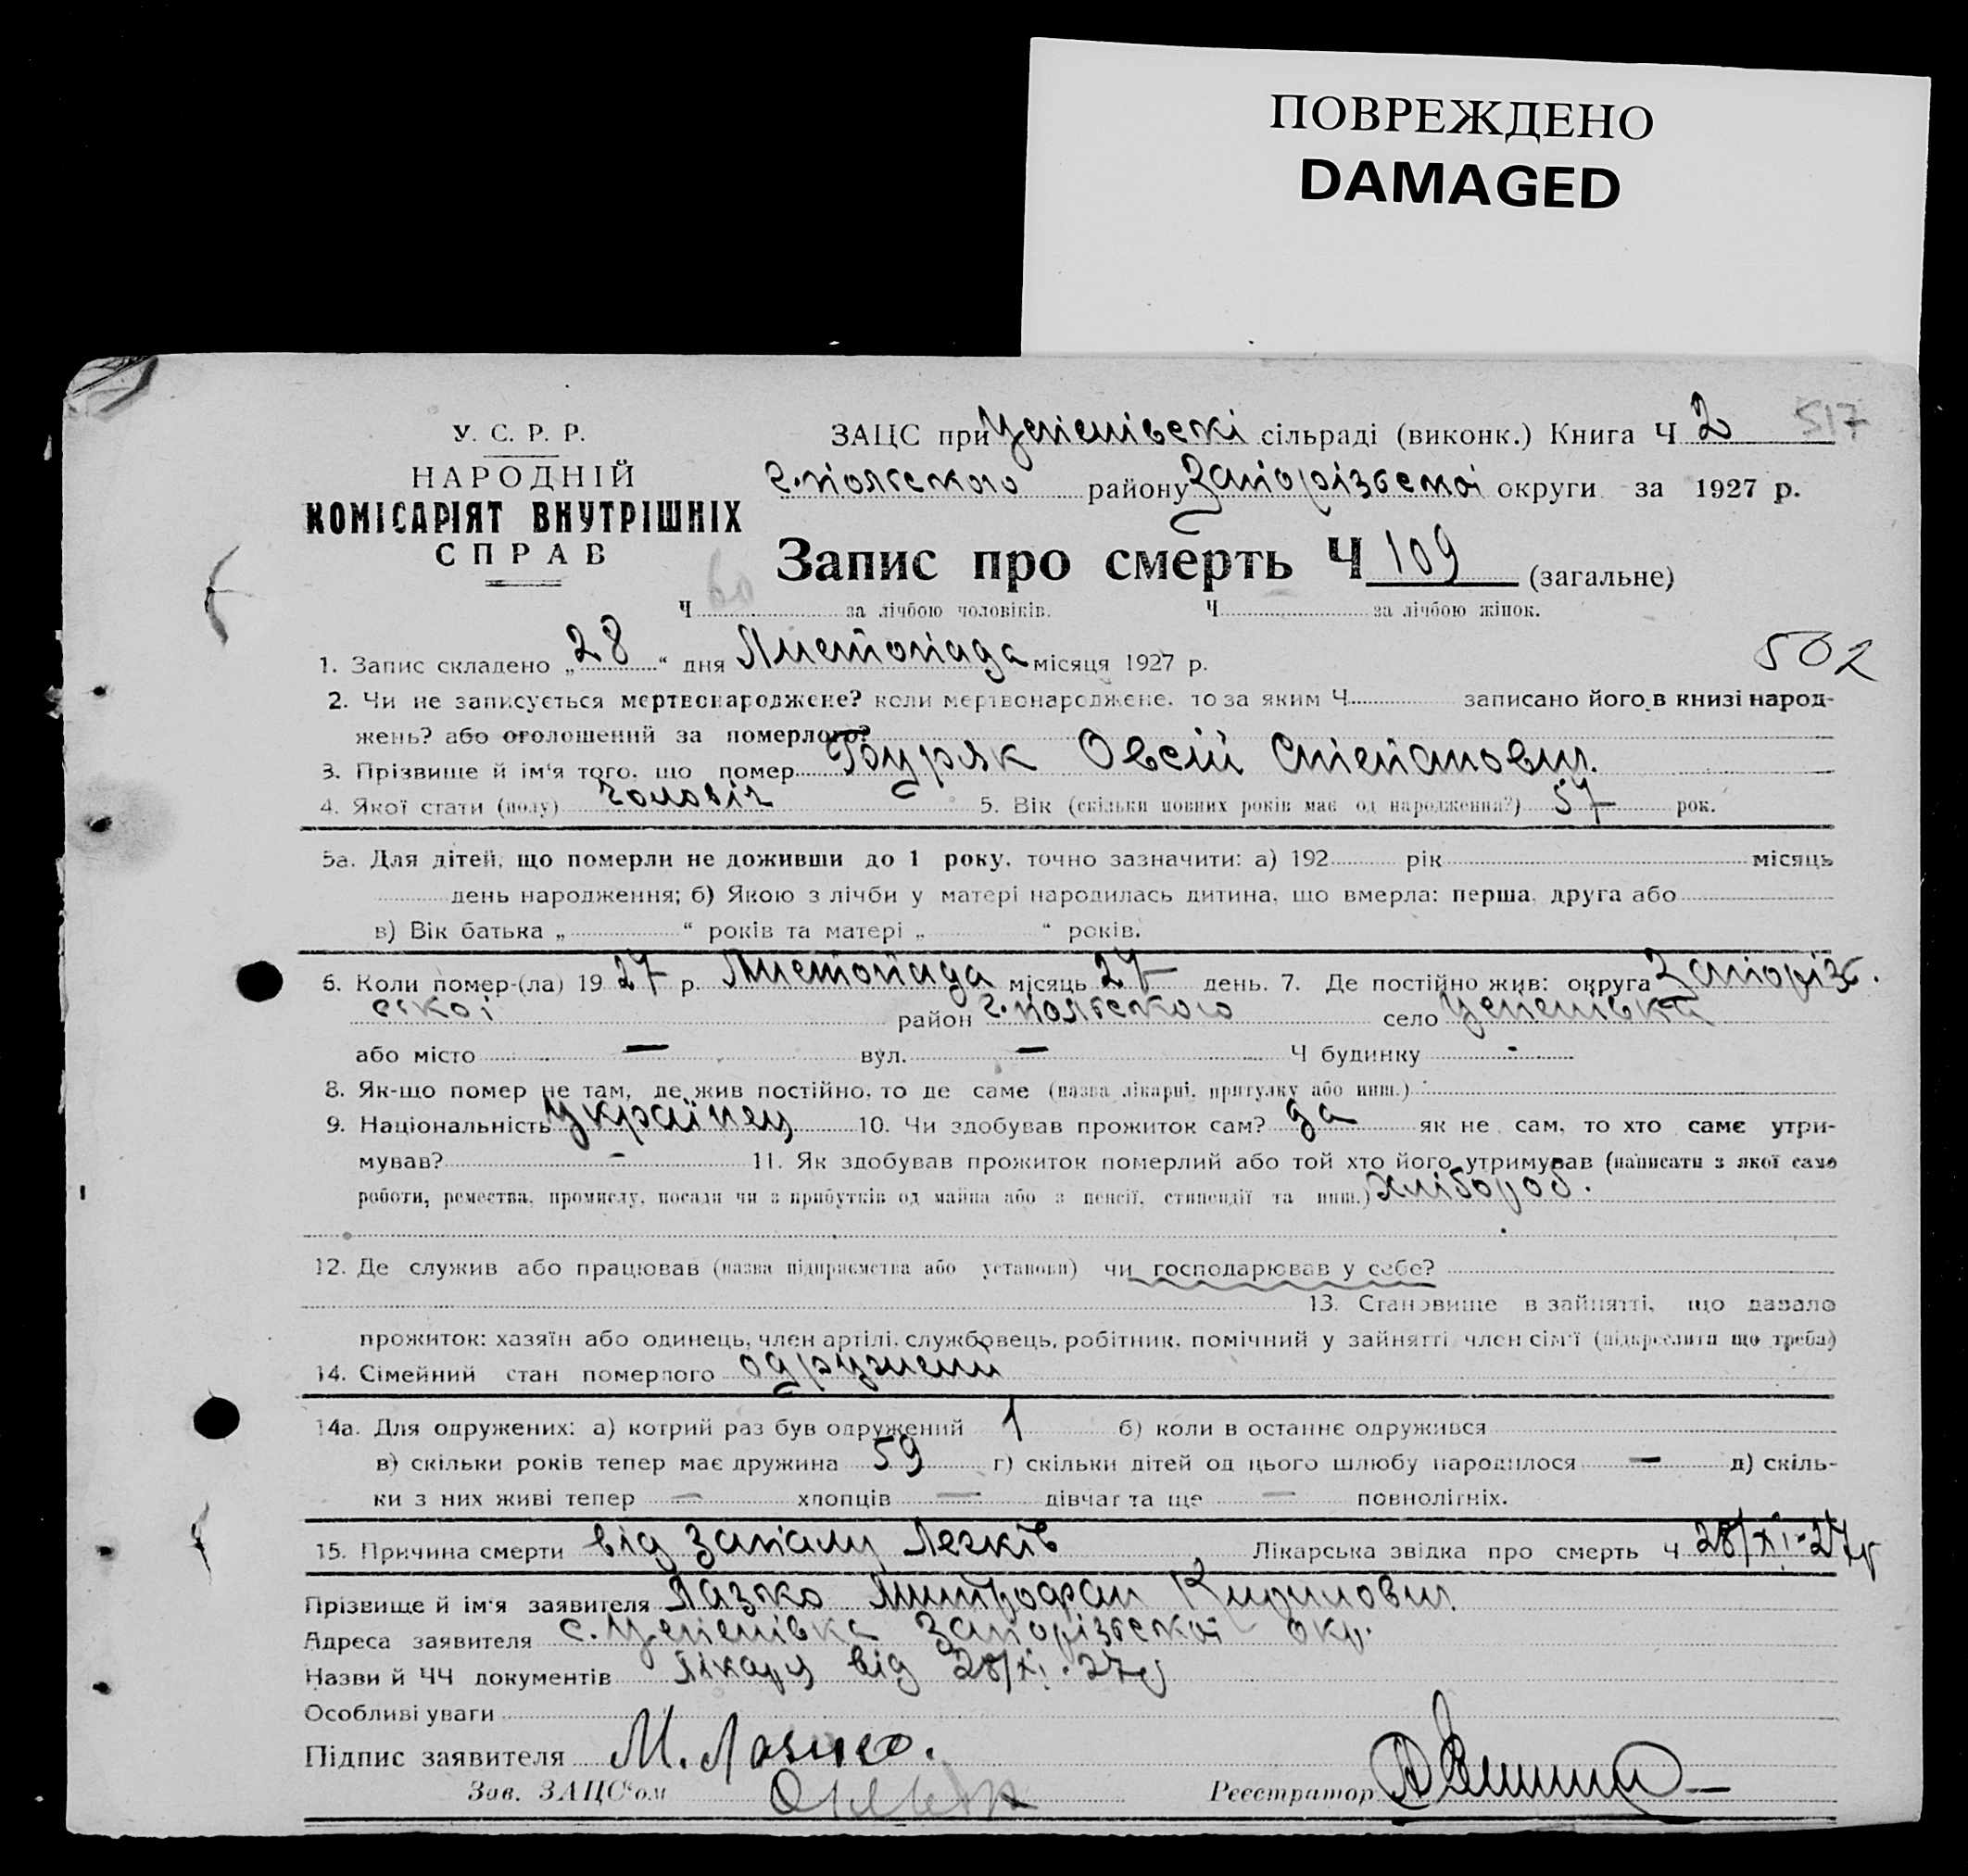 ПОВРЕЖДЕНО
DAMAGED
У. С. Р. Р.
НАРОДНІЙ
КОМІСАРІЯТ ВНУТРІШНІХ
СПРАВ
ЗАЦС при Успенівскі сільраді (виконк.) Книга Ч 2 517
г.польского району Запорізської округи за 1927 р.
Запис про смерть Ч 109 (загальне)
Ч 60 за лічбою чоловіків. Ч за лічбою жінок.
1. Запис складено „28“ дня Листопада місяця 1927 р.
502
2. Чи не записується мертвонароджене? коли мертвонароджене, то за яким Ч записано його в книзі народ-
жень? або оголошений за померлого?
3. Прізвище й ім'я того, що помер Буряк Овсій Степанович.
4. Якої стати (полу) чоловіч 5. Вік (скільки повних років має од народження?) 57 рок.
5а. Для дітей, що померли не доживши до 1 року, точно зазначити: а) 192 рік місяць
день народження; б) Якою з лічби у матері народилась дитина, що вмерла: перша, друга або
в) Вік батька „ “ років та матері „ “ років.
6. Коли помер-(ла) 1927 р. Листопада місяць 27 день. 7. Де постійно жив: округа Запоріз.
ської район г.польского село Успенівка
або місто — вул. — Ч будинку -
8. Як-що помер не там, де жив постійно, то де саме (назва лікарні, притулку або инш.)
9. Національність українец 10. Чи здобував прожиток сам? да як не сам, то хто саме утри-
мував? - 11. Як здобував прожиток померлий або той хто його утримував (написати з якої само
роботи, ремества, промислу, посади чи з прибутків од майна або з пенсії, стипендії та инш.) хлібороб.
12. Де служив або працював (назва підприємства або установи) чи господарював у себе?
13. Становище в зайнятті, що давало
прожиток: хазяїн або одинець, член артілі, службовець, робітник, помічний у зайнятті член сім'ї (підкреслити що треба)
14. Сімейний стан померлого одружений
14а. Для одружених: а) котрий раз був одружений 1 б) коли в останнє одружився
в) скільки років тепер має дружина 59 г) скільки дітей од цього шлюбу народилося — д) скіль-
ки з них живі тепер — хлопців — дівчат та ще — повнолітніх.
15. Причина смерти від запалу Легків Лікарська звідка про смерть Ч 28/XI-27р
Прізвище й ім'я заявителя Лазко Митрофан Кирилович.
Адреса заявителя с. Успенівка Запорізської окр.
Назви й ЧЧ документів лікаря від 28/XI.27р
Особливі уваги
Підпис заявителя М. Лазко.
Зав. ЗАЦС'ом Реєстратор